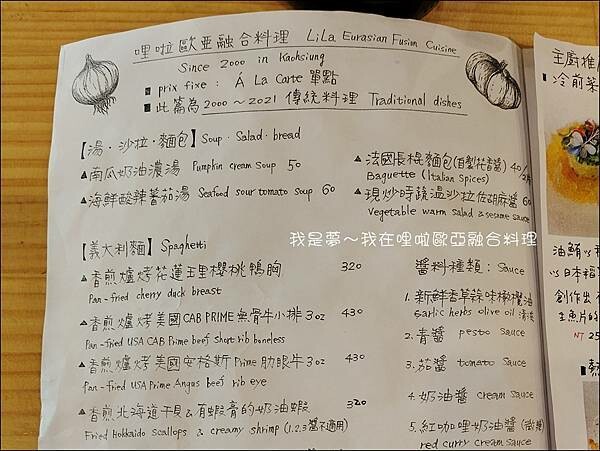 哩啦歐亞融合料理 LiLa Eurasian Fusim Cuisine
Since 2000 in Kaohsiung
■ prix fixe : Á La Carte 單點
■ 此篇為2000～2021 傳統料理 Traditional dishes
【湯・沙拉・麵包】Soup・Salad・bread
▲南瓜奶油濃湯 Pumpkin cream Soup 50
▲海鮮酸辣蕃茄湯 Seafood sour tomato Soup 60
▲法國長棍麵包(自製花香醬) 40/2片
Baguette (Italian Spices)
▲現炒時蔬温沙拉佐胡麻醬 60
Vegetable warm salad & sesame sauce
我是夢～我在哩啦歐亞融合料理
【義大利麵】Spaghetti
▲香煎爐烤花蓮玉里櫻桃鴨胸 320
Pan-fried cherry duck breast
▲香煎爐烤美國CAB PRIME無骨牛小排3oz 430
Pan-fried USA CAB Prime beef short rib boneless
▲香煎爐烤美國安格斯Prime肋眼牛3oz 430
Pan-fried USA Prime Angus Beef rib eye
▲香煎北海道干貝&有蝦膏的奶油蝦 320
Fried Hokkaido Scallops & creamy shrimp (1.2.3醬不適用)
醬料種類 : Sauce
1. 新鮮香草蒜味橄欖油
Garlic herbs olive oil 清淡
2. 青醬 pesto Sauce
3. 茄醬 tomato Sauce
4. 奶油醬 cream Sauce
5. 紅咖哩奶油醬 (微辣)
red curry cream Sauce
主廚推
■ 冷前菜
油鮪以
以日本福
創作出
生魚片的
NT 25
■ 熱